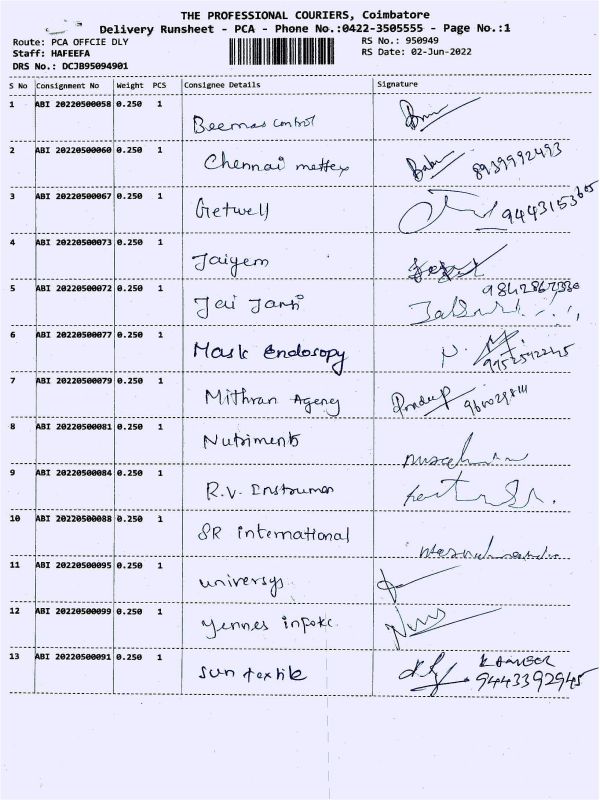 THE PROFESSIONAL COURIERS, Coimbatore
Delivery Runsheet - PCA - Phone No.:0422-3505555 - Page No.:1
Route: PCA OFFCIE DLY RS No.: 950949
Staff: HAFEEFA RS Date: 02-Jun-2022
DRS No.: DCJB95094901
S No Consignment No Weight PCS Consignee Details Signature
1 ABI 20220500058 0.250 1
Beemas control
2 ABI 20220500060 0.250 1
Chennai mettex Babu 8939992493
3 ABI 20220500067 0.250 1
Getwell 9443153605
4 ABI 20220500073 0.250 1
Jaiyem
5 ABI 20220500072 0.250 1
Jai Janti
6 ABI 20220500077 0.250 1
Mask endosopy
7 ABI 20220500079 0.250 1
Mithran Agency Pradeep
8 ABI 20220500081 0.250 1
Nutriments
9 ABI 20220500084 0.250 1
R.V. Instrumen
10 ABI 20220500088 0.250 1
SR international
11 ABI 20220500095 0.250 1
universys
12 ABI 20220500099 0.250 1
yennes infokc
13 ABI 20220500091 0.250 1
sun textile 9443392945